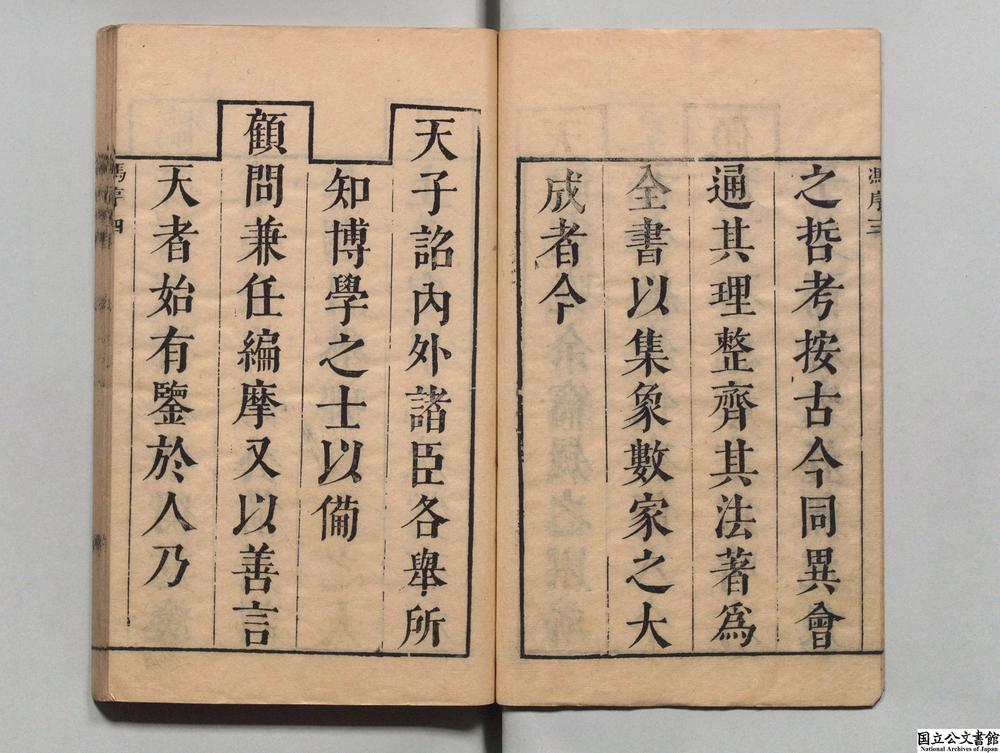 馮序三
之哲考按古今同異會
通其理整齊其法著為
全書以集象數家之大
成者今
天子詔內外諸臣各舉所
知博學之士以備
顧問兼任編摩又以善言
天者始有鑒於人乃
馮序四
国立公文書館
National Archives of Japan